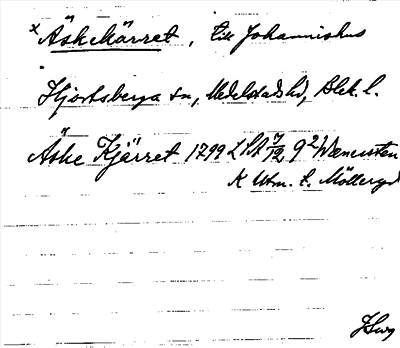 x Äskekärret, till Johannishus
Hjortsberga sn, Medelstads hd, Blek. l.
Äske Kjärret 1799 LSA 7/12, 9²
K Utm. t. Möllergd